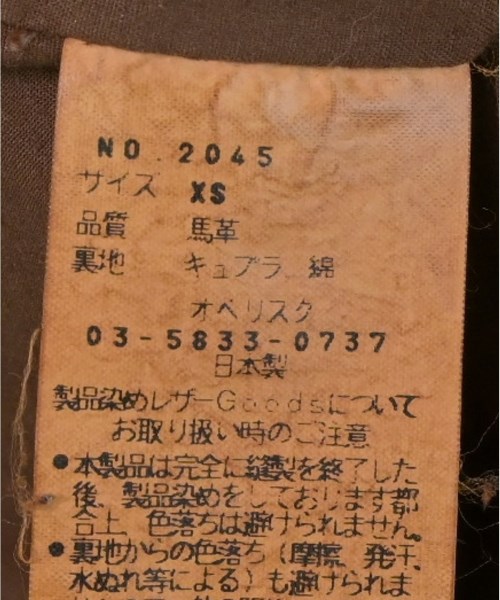 NO. 2045
サイズ XS
品質 馬革
裏地 キュプラ 綿
オベリスク
03-5833-0737
日本製
製品染めレザーGoodsについて
お取り扱い時のご注意
●本製品は完全に縫製を終了した
後、製品染めをしております都
合上、色落ちは避けられません。
●裏地からの色落ち(摩擦、発汗、
水ぬれ等による)も避けられま